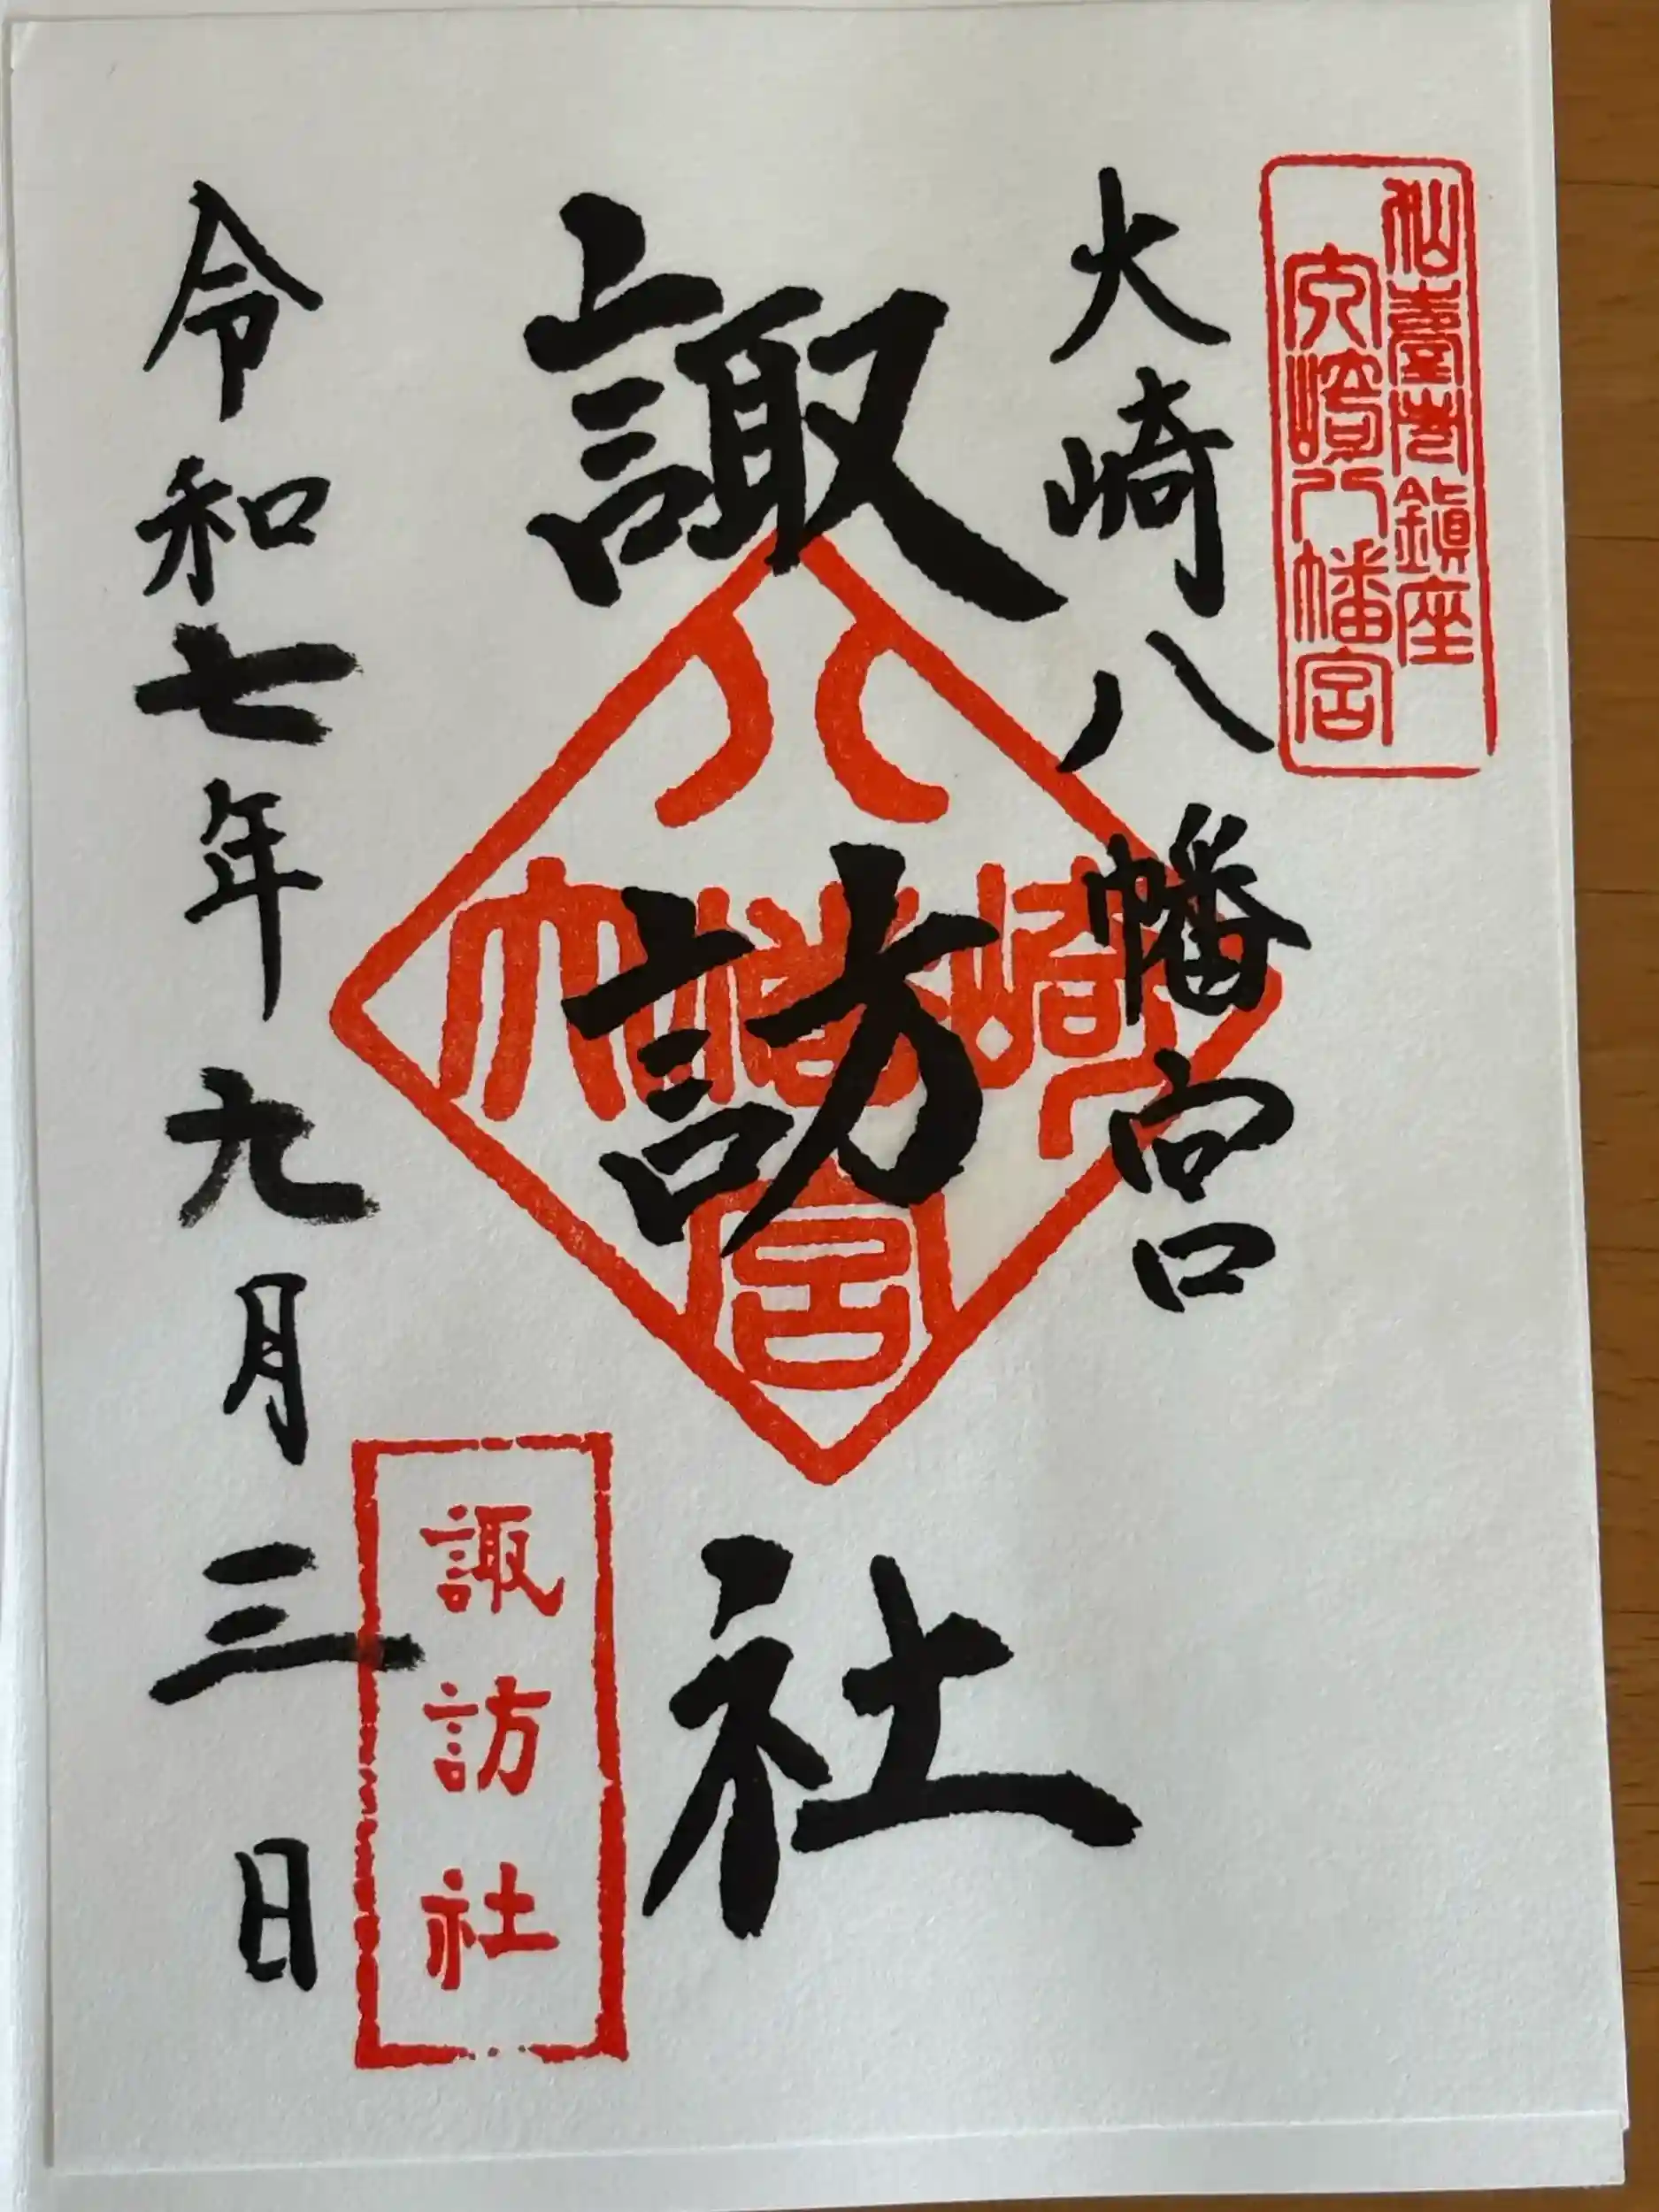 仙臺市鎮座
大崎八幡宮
大崎八幡宮
諏訪社
八
大幡崎
宮
令和七年九月三日
諏訪社